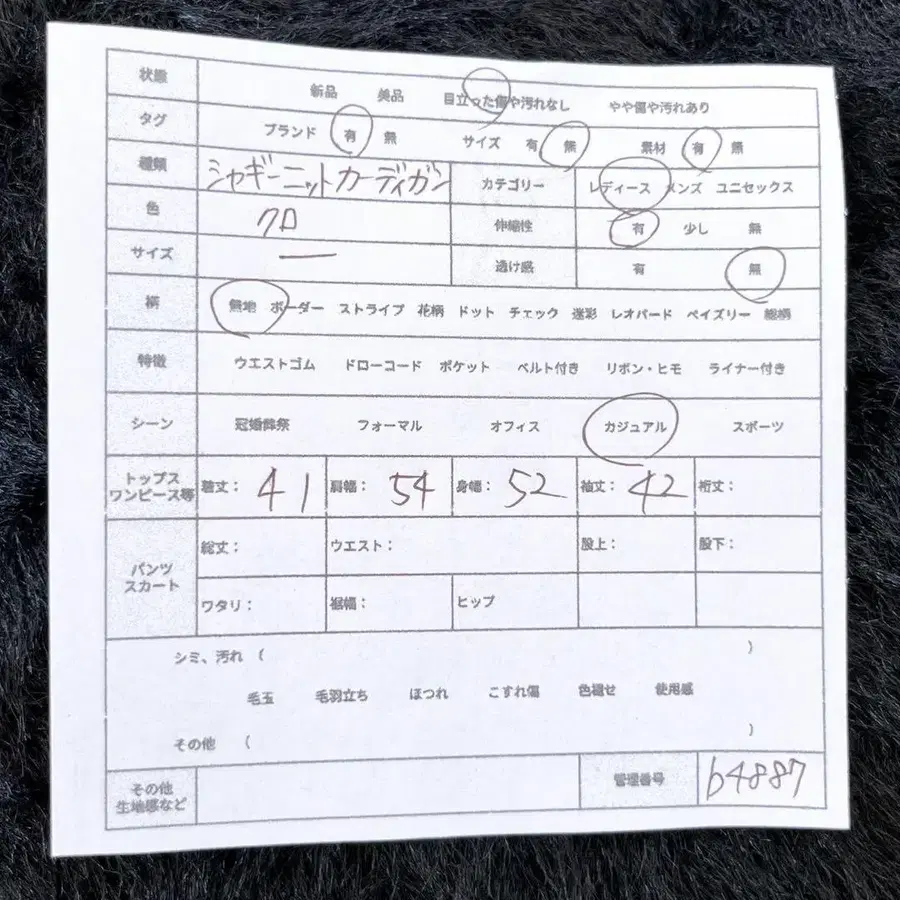 状態 新品 美品 目立った傷や汚れなし やや傷や汚れあり
タグ ブランド 有 無 サイズ 有 無 素材 有 無
種類 シャギーニットカーディガン カテゴリー レディース メンズ ユニセックス
色 クロ 伸縮性 有 少し 無
サイズ ー 透け感 有 無
柄 無地 ボーダー ストライプ 花柄 ドット チェック 迷彩 レオパード ペイズリー 総柄
特徴 ウエストゴム ドローコード ポケット ベルト付き リボン・ヒモ ライナー付き
シーン 冠婚葬祭 フォーマル オフィス カジュアル スポーツ
トップス
ワンピース等 着丈: 41 肩幅: 54 身幅: 52 袖丈: 42 裄丈:
パンツ
スカート
総丈: ウエスト: 股上: 股下:
ワタリ: 裾幅: ヒップ
シミ、汚れ ( )
毛玉 毛羽立ち ほつれ こすれ傷 色褪せ 使用感
その他 ( )
その他
生地感など 管理番号 b4887